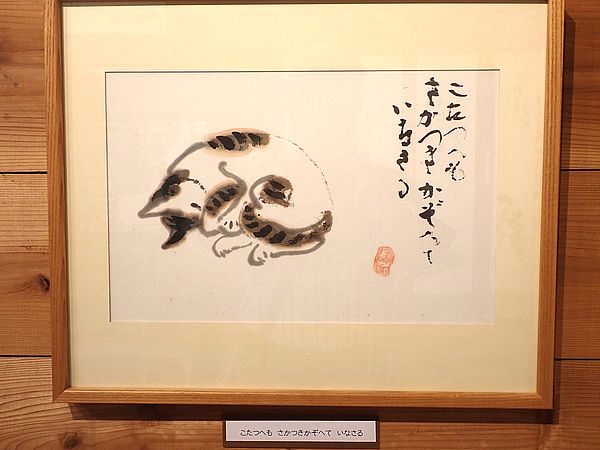 こたつへも
さかつきかぞへて
いなさる
こたつへも さかつきかぞへて いなさる